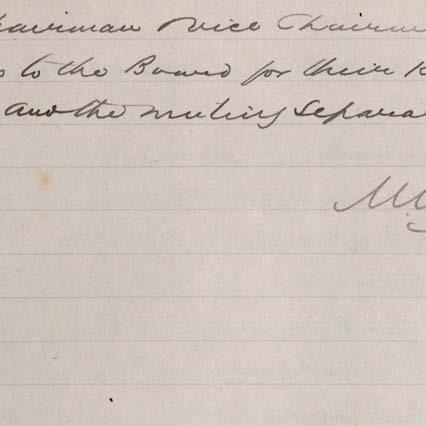 hairman & Vice Chairm
s to the Board for their K
and the meeting separa
M